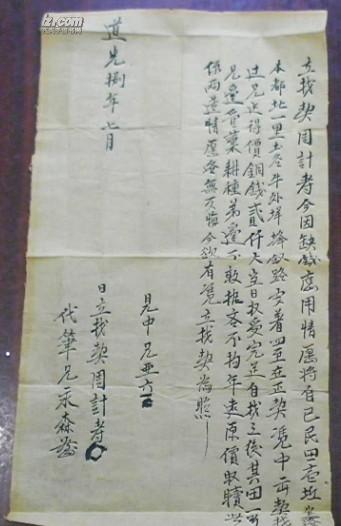 立找契周計考今因缺錢應用情愿將自己民田壹坵
本都北一里土名牛外垟 安着四至在正契憑中再契找
過兄邊得價銅錢貳仟文其日收受完足自找之後其田
兄邊管業耕種弟邊不敢 不拘年 原價取贖
係兩邊情愿各無反悔今欲有憑立找契為照
見中兄亜六
道光捌年七月
日立找契周計考
代筆兄永森